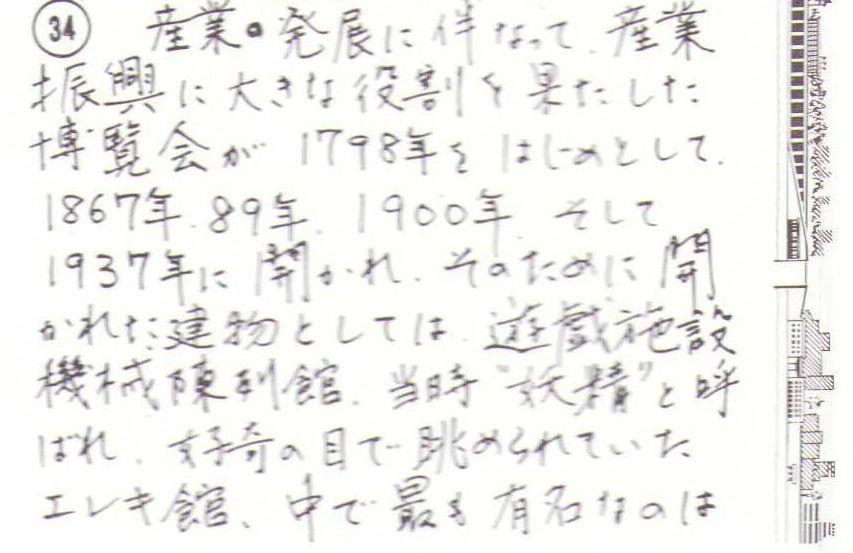 34
産業の発展に伴なって、産業
振興に大きな役割を果たした
博覧会が 1798年をはじめとして、
1867年、89年、1900年、そして
1937年に開かれ、そのために開
かれた建物としては、遊戯施設
機械陳列館、当時“妖精”と呼
ばれ、好奇の目で眺められていた
エレキ館、中で最も有名なのは